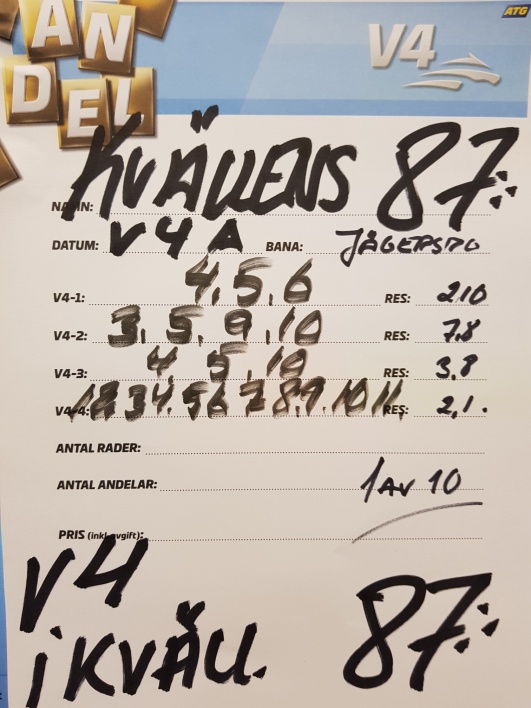 ATG
ANDEL
V4
KVÄLLENS 87:-
NAMN:
DATUM: V4A BANA: JÄGERSRO
V4-1: 4, 5, 6 RES: 2,10
V4-2: 3, 5, 9, 10 RES: 7,8
V4-3: 4, 5, 10 RES: 3,8
V4-4: 1 2 3 4. 5 6 7 8. 9. 10 11 RES: 2,1.
ANTAL RADER:
ANTAL ANDELAR: 1 AV 10
PRIS (inkl. avgift):
V4
i KVÄLL. 87:-